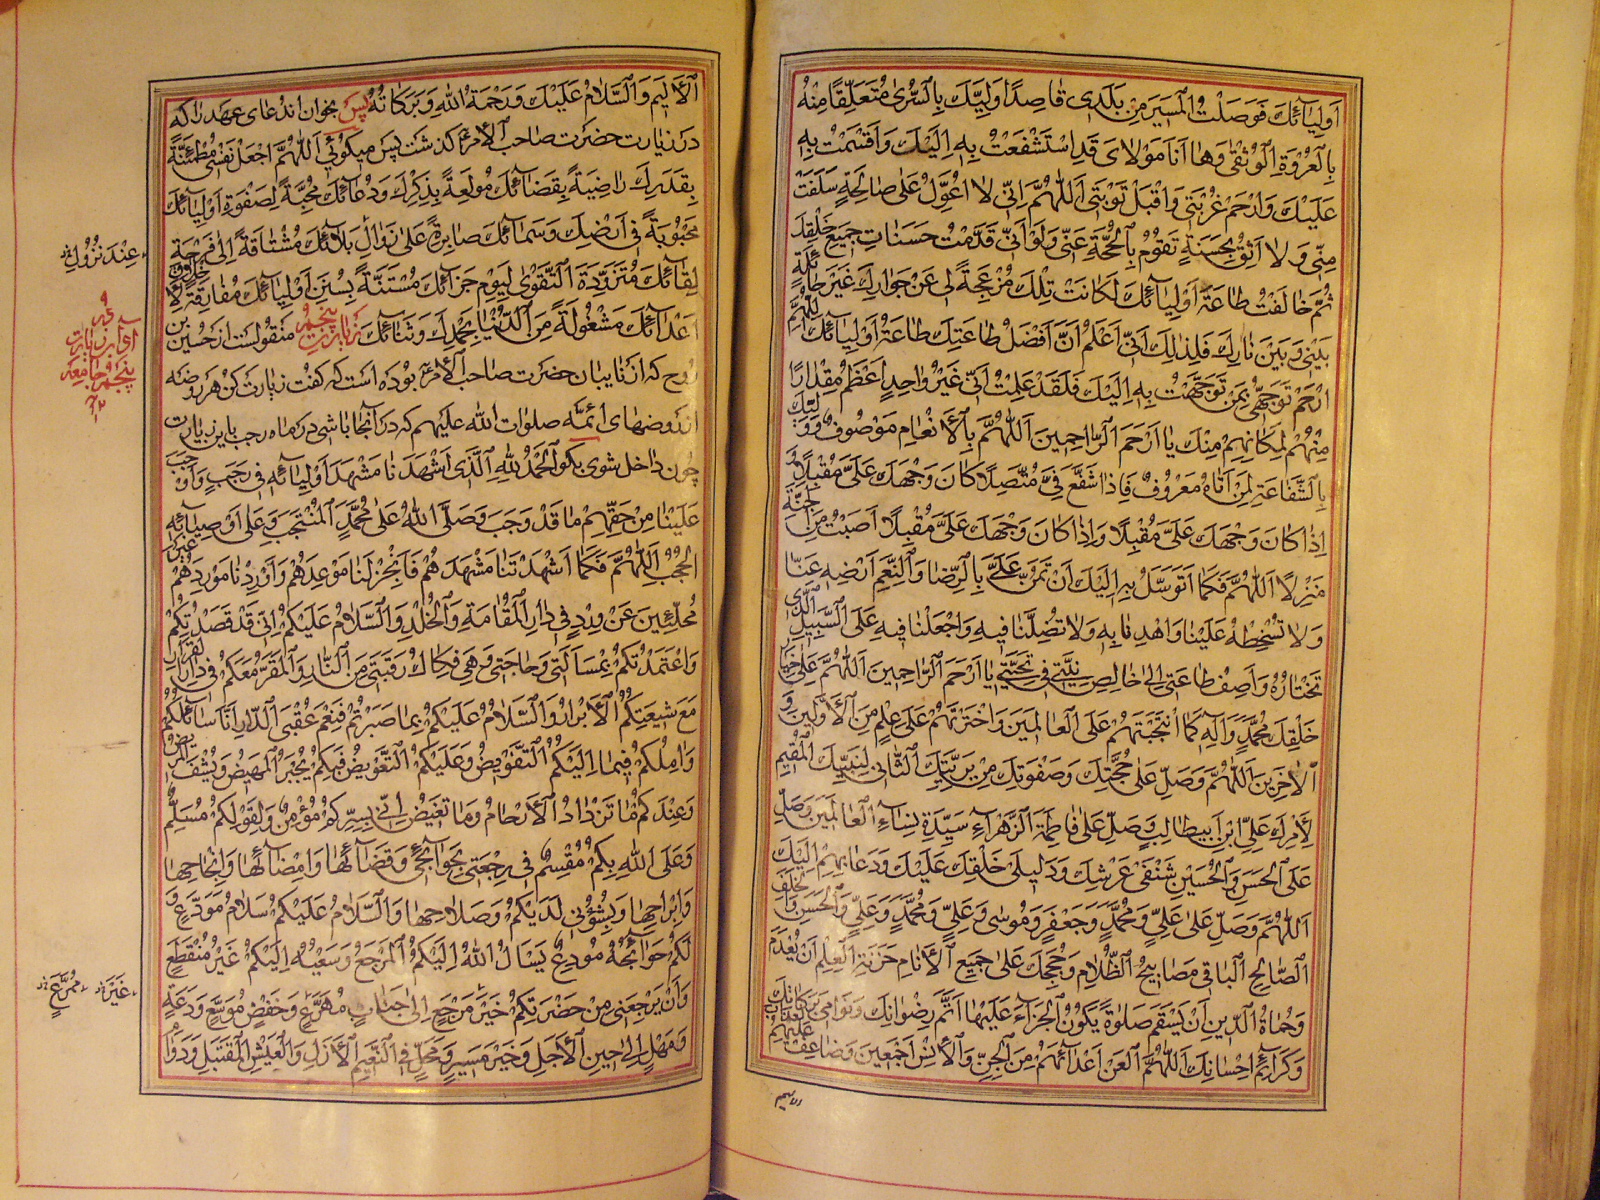 أَوْلِيَائِكَ فَوَصَلْتُ الْمَسِيرَ مِنْ بَلَدِي قَاصِدًا وَلِيَّكَ بِالْبُشْرَى مُتَعَلِّقًا مِنْهُ
بِالْعُرْوَةِ الْوُثْقَى وَهَا أَنَا مَوْلَايَ قَدِ اسْتَشْفَعْتُ بِهِ إِلَيْكَ وَأَقْسَمْتُ بِهِ
عَلَيْكَ وَارْحَمْ غُرْبَتِي وَاقْبَلْ تَوْبَتِي اَللّٰهُمَّ إِنِّي لَا أُعَوِّلُ عَلَى صَالِحَةٍ سَلَفَتْ
مِنِّي وَلَا أَثِقُ بِحَسَنَةٍ تَقُومُ بِالْحُجَّةِ عَنِّي وَلَوْ أَنِّي قَدَّمْتُ حَسَنَاتِ جَمِيعِ خَلْقِكَ
ثُمَّ خَالَفْتُ طَاعَةَ أَوْلِيَائِكَ لَكَانَتْ تِلْكَ مُزْعِجَةً لِي عَنْ جِوَارِكَ غَيْرَ حَائِلَةٍ
بَيْنِي وَبَيْنَ نَارِكَ فَلِذَلِكَ أَنِّي أَعْلَمُ أَنَّ أَفْضَلَ طَاعَتِكَ طَاعَةُ أَوْلِيَائِكَ اَللّٰهُمَّ
ارْحَمْ تَوَجُّهِي بِمَنْ تَوَجَّهْتُ بِهِ إِلَيْكَ فَلَقَدْ عَلِمْتُ أَنِّي غَيْرُ وَاحِدٍ أَعْظَمَ مِقْدَارًا
مِنْهُمْ لِمَكَانِهِمْ مِنْكَ يَا أَرْحَمَ الرَّاحِمِينَ اَللّٰهُمَّ بِالْأَنْعَامِ مَوْصُوفٌ وَوَلِيُّكَ
بِالشَّفَاعَةِ لِمَنْ أَتَاهُ مَعْرُوفٌ فَإِذَا شَفَّعَ فِيَّ مُتَفَضِّلًا كَانَ وَجْهُكَ عَلَيَّ مُقْبِلًا وَ
إِذَا كَانَ وَجْهُكَ عَلَيَّ مُقْبِلًا وَإِذَا كَانَ وَجْهُكَ عَلَيَّ مُقْبِلًا أَصَبْتُ مِنَ الْجَنَّةِ
مَنْزِلًا اَللّٰهُمَّ فَكَمَا أَتَوَسَّلُ بِهِ إِلَيْكَ أَنْ تَمُنَّ عَلَيَّ بِالرِّضَا وَالنِّعَمِ أَرْضِهِ عَنَّا
وَلَا تُسْخِطْهُ عَلَيْنَا وَاهْدِنَا بِهِ وَلَا تُضِلَّنَا فِيهِ وَاجْعَلْنَا فِيهِ عَلَى السَّبِيلِ الَّذِي
تَخْتَارُهُ وَأَضِفْ طَاعَتِي إِلَى خَالِصِ نِيَّتِي فِي تَحِيَّتِي يَا أَرْحَمَ الرَّاحِمِينَ اَللّٰهُمَّ عَلَى خِيَارِ
خَلْقِكَ مُحَمَّدٍ وَآلِهِ كَمَا انْتَجَبْتَهُمْ عَلَى الْعَالَمِينَ وَاخْتَرْتَهُمْ عَلَى عِلْمٍ مِنَ الْأَوَّلِينَ وَ
الْآخِرِينَ اَللّٰهُمَّ وَصَلِّ عَلَى حُجَّتِكَ وَصَفْوَتِكَ مِنْ بَرِيَّتِكَ الثَّانِي لِنَبِيِّكَ الْمُقِيمِ
لِأَمْرِكَ عَلِيِّ ابْنِ أَبِيطَالِبٍ وَصَلِّ عَلَى فَاطِمَةَ الزَّهْرَاءِ سَيِّدَةِ نِسَاءِ الْعَالَمِينَ وَصَلِّ
عَلَى الْحَسَنِ وَالْحُسَيْنِ شَنْفَيْ عَرْشِكَ وَدَلِيلَيْ خَلْقِكَ عَلَيْكَ وَدُعَاتِهِمْ إِلَيْكَ
اَللّٰهُمَّ وَصَلِّ عَلَى عَلِيٍّ وَمُحَمَّدٍ وَجَعْفَرٍ وَمُوسَى وَعَلِيٍّ وَمُحَمَّدٍ وَعَلِيٍّ وَالْحَسَنِ وَالْخَلَفِ
الصَّالِحِ الْبَاقِي مَصَابِيحِ الظَّلَامِ وَحُجَجِكَ عَلَى جَمِيعِ الْأَنَامِ خَزَنَةِ الْعِلْمِ أَنْ يُعْدَمَ
وَحُمَاةِ الدِّينِ أَنْ يَسْقَمَ صَلَاةً يَكُونُ الْجَزَاءُ عَلَيْهَا أَتَمَّ رِضْوَانِكَ وَنَوَامِيَ بَرَكَاتِكَ
وَكَرَائِمَ إِحْسَانِكَ اَللّٰهُمَّ الْعَنْ أَعْدَائَهُمْ مِنَ الْجِنِّ وَالْأِنْسِ أَجْمَعِينَ وَضَاعِفْ عَلَيْهِمُ الْعَذَابَ
الْأَلِيمَ وَالسَّلَامُ عَلَيْكَ وَرَحْمَةُ اللّٰهِ وَبَرَكَاتُهُ پس بخوان اندعای عهد را که
در زیارت حضرت صاحب الأمر گذشت پس میکوئی اَللّٰهُمَّ اجْعَلْ نَفْسِي مُطْمَئِنَّةً
بِقَدَرِكَ رَاضِيَةً بِقَضَائِكَ مُولَعَةً بِذِكْرِكَ وَدُعَائِكَ مُحِبَّةً لِصَفْوَةِ أَوْلِيَائِكَ
مَحْبُوبَةً فِي أَرْضِكَ وَسَمَائِكَ صَابِرَةً عَلَى نُزُولِ بَلَائِكَ مُشْتَاقَةً إِلَى فَرْحَةِ
لِقَائِكَ مُتَزَوِّدَةً التَّقْوَى لِيَوْمِ جَزَائِكَ مُسْتَنَّةً بِسُنَنِ أَوْلِيَائِكَ مُفَارِقَةً لِأَخْلَاقِ
أَعْدَائِكَ مَشْغُولَةً مِنَ الدُّنْيَا بِحَمْدِكَ وَثَنَائِكَ زیارت پنجم منقولست از حسین بن
روح که از نایبان حضرت صاحب الأمر بوده است که گفت زیارت کن هر روضه
از روضهای ائمّه صلوات اللّٰه علیهم که در آنجا باشی در ماه رجب باین زیارت
چون داخل شوی بگو اَلْحَمْدُ لِلّٰهِ الَّذِي أَشْهَدَنَا مَشْهَدَ أَوْلِيَائِهِ فِي رَجَبٍ وَأَوْجَبَ
عَلَيْنَا مِنْ حَقِّهِمْ مَا قَدْ وَجَبَ وَصَلَّى اللّٰهُ عَلَى مُحَمَّدٍ الْمُنْتَجَبِ وَعَلَى أَوْصِيَائِهِ
الْحُجُبِ اَللّٰهُمَّ فَكَمَا أَشْهَدْتَنَا مَشْهَدَهُمْ فَأَنْجِزْ لَنَا مَوْعِدَهُمْ وَأَوْرِدْنَا مَوْرِدَهُمْ غَيْرَ
مُحَلَّئِينَ عَنْ وِرْدٍ فِي دَارِ الْمُقَامَةِ وَالْخُلْدِ وَالسَّلَامُ عَلَيْكُمْ إِنِّي قَدْ قَصَدْتُكُمْ
وَاعْتَمَدْتُكُمْ بِمَسْأَلَتِي وَحَاجَتِي وَهِيَ فِكَاكُ رَقَبَتِي مِنَ النَّارِ وَالْمَقَرُّ مَعَكُمْ فِي دَارِ الْقَرَارِ
مَعَ شِيعَتِكُمُ الْأَبْرَارِ وَالسَّلَامُ عَلَيْكُمْ بِمَا صَبَرْتُمْ فَنِعْمَ عُقْبَى الدَّارِ أَنَا سَائِلُكُمْ
وَآمِلُكُمْ فِيمَا إِلَيْكُمُ التَّفْوِيضُ وَعَلَيْكُمُ التَّعْوِيضُ فَبِكُمْ يُجْبَرُ الْمَهِيضُ وَيُشْفَى الْمَرِيضُ
وَعِنْدَكُمْ مَا تَزْدَادُ الْأَرْحَامُ وَمَا تَغِيضُ إِنِّي بِسِرِّكُمْ مُؤْمِنٌ وَلِقَوْلِكُمْ مُسَلِّمٌ
وَعَلَى اللّٰهِ بِكُمْ مُقْسِمٌ فِي رَجْعَتِي بِحَوَائِجِي وَقَضَائِهَا وَإِمْضَائِهَا وَإِنْجَاحِهَا
وَإِبْرَاحِهَا وَبِشُؤُنِي لَدَيْكُمْ وَصَلَاحِهَا وَالسَّلَامُ عَلَيْكُمْ سَلَامَ مُوَدِّعٍ وَ
لَكُمْ حَوَائِجَهُ مُودِعٌ يَسْأَلُ اللّٰهَ إِلَيْكُمُ الْمَرْجِعَ وَسَعْيُهُ إِلَيْكُمْ غَيْرُ مُنْقَطِعٍ
وَأَنْ يَرْجِعَنِي مِنْ حَضْرَتِكُمْ خَيْرَ مَرْجِعٍ إِلَى جَنَابٍ مُمْرَعٍ وَخَفْضٍ مُوَسَّعٍ وَدَعَةٍ
وَمَهَلٍ إِلَى حِينِ الْأَجَلِ وَخَيْرِ مَسِيرٍ وَمَحَلٍّ فِي النَّعِيمِ الْأَزَلِ وَالْعَيْشِ الْمُقْتَبَلِ وَدَوَامِ
عِنْدَ نُزُولِ
پنجم جامعه
غَيْرَ مُمْرَعٍ